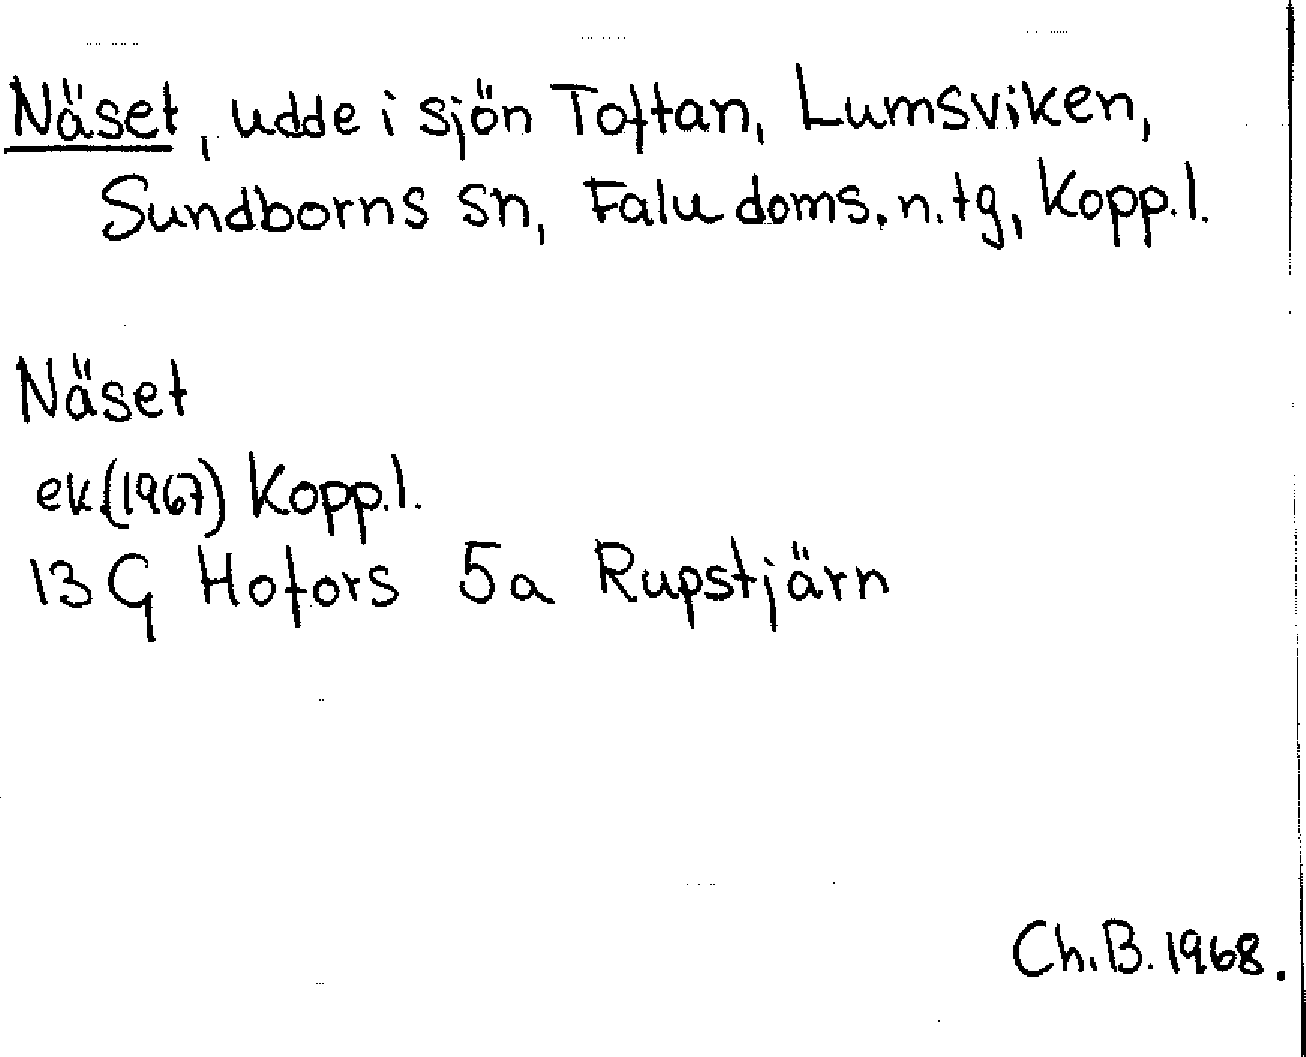 Näset, udde i sjön Toftan, Lumsviken,
Sundborns sn, Falu doms. n. tg, Kopp. l.
Näset
ek (1967) Kopp. l.
13 G Hofors 5a Rupstjärn
Ch. B. 1968.